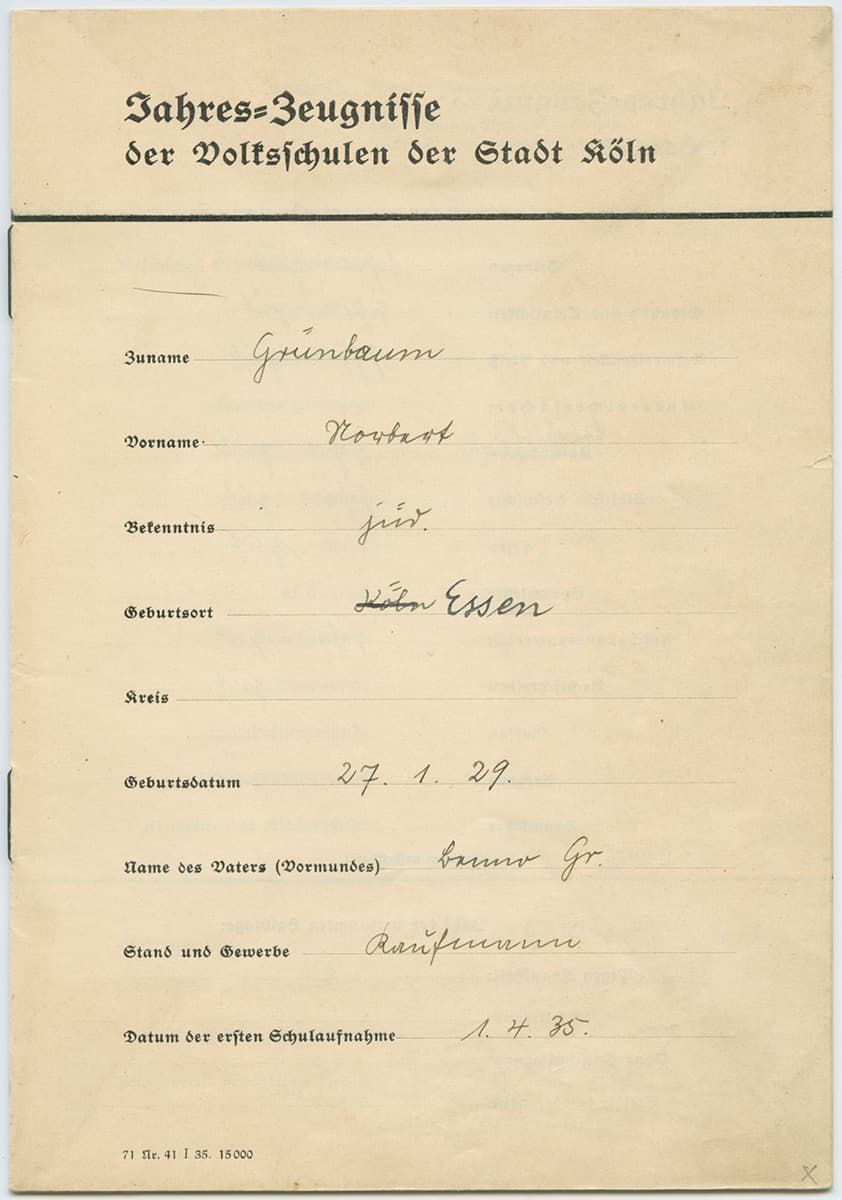 Jahres=Zeugnisse
der Volksschulen der Stadt Köln
Zuname Grünbaum
Vorname Norbert
Bekenntnis jüd.
Geburtsort Köln Essen
Kreis
Geburtsdatum 27. 1. 29.
Name des Vaters (Vormundes) Benno Gr.
Stand und Gewerbe Kaufmann
Datum der ersten Schulaufnahme 1. 4. 35.
71 Nr. 41 I 35. 15000
X